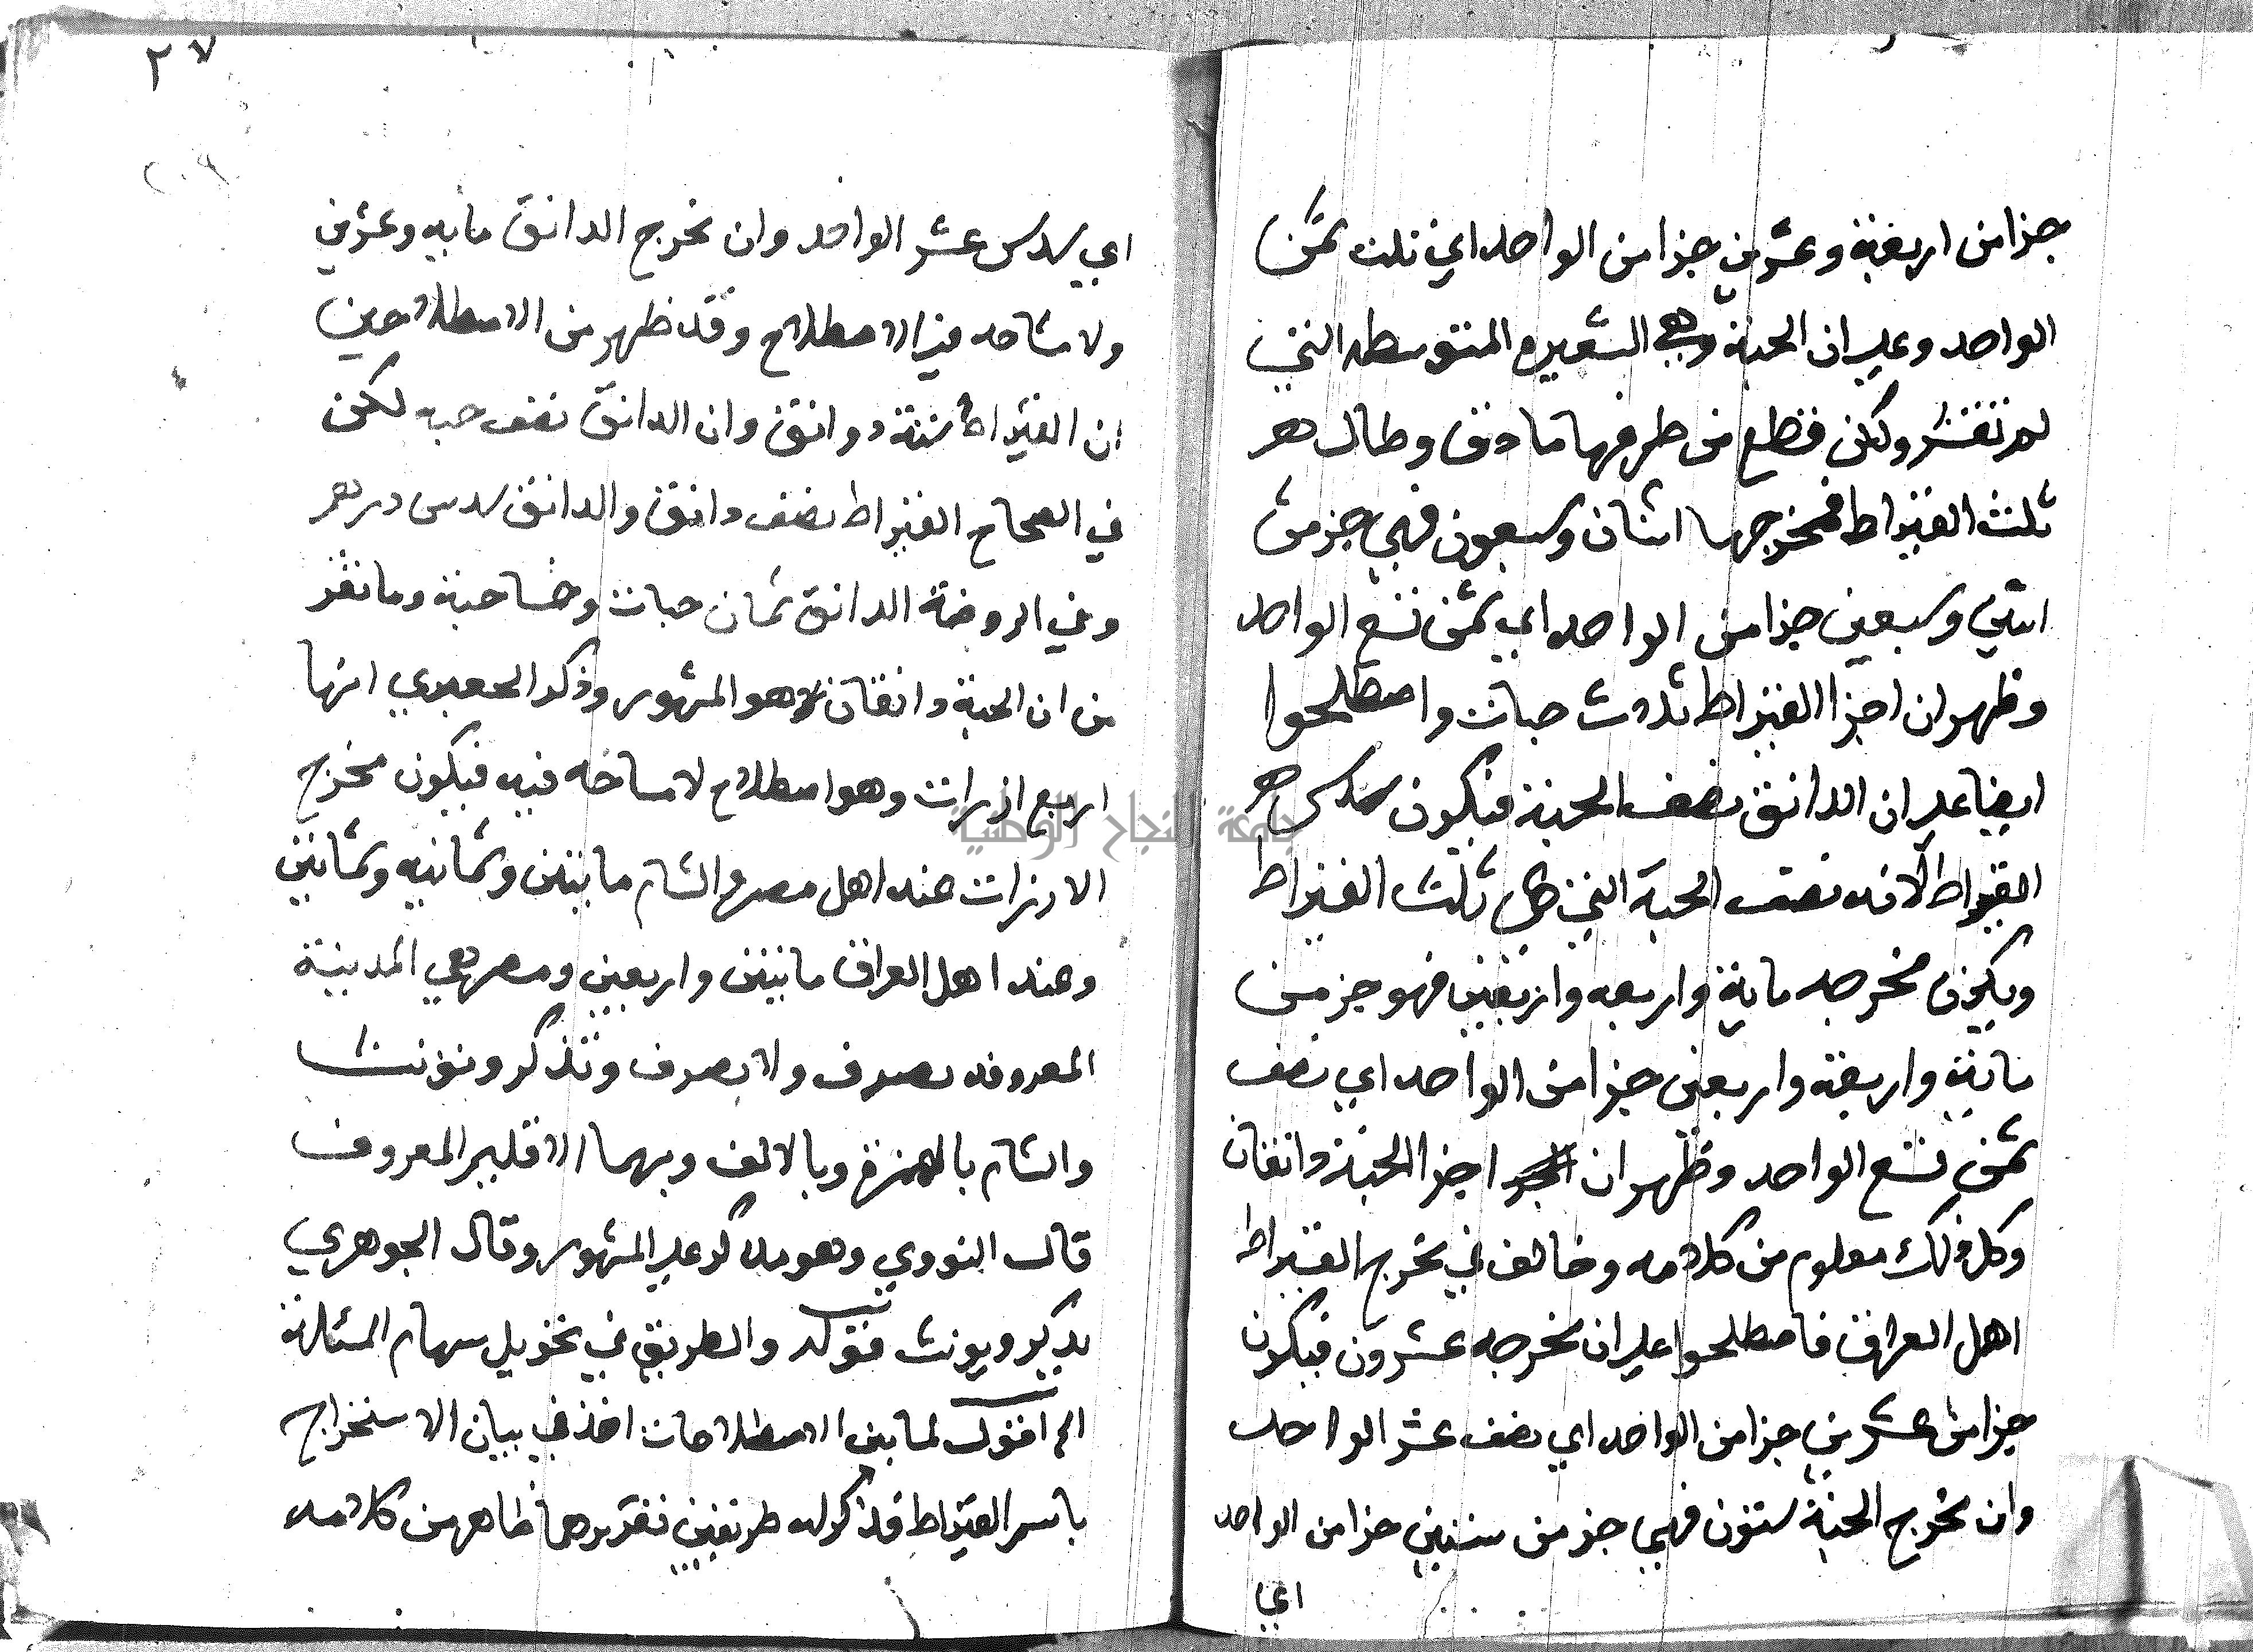 جزا من اربعة وعشرين جزا من الواحد اي ثلث ثمن
الواحد وعلي ان الحبة وهي الشعيره المتوسطه التي
لم تقشر ولكن قطع من طرفها ما دق وطال هو
ثلث القيراط فمخرجها اثنان وسبعون فهي جز من
اثنين وسبعين جزا من الواحد اي ثمن تسع الواحد
وظهر ان اجزا القيراط ثلاث حبات واصطلحوا
ايضا علي ان الدانق نصف الحبة فيكون سدس
القيراط لانه نصف الحبة التي هي ثلث القيراط
ويكون مخرجه ماية واربعه واربعين فهو جز من
ماية واربعة واربعين جزا من الواحد اي نصف
ثمن تسع الواحد وظهر ان اجزا الحبة دانقان
وكل ذلك معلوم من كلامه وخالف في مخرج القيراط
اهل العراق فاصطلحوا علي ان مخرجه عشرون فيكون
جزا من عشرين جزا من الواحد اي نصف عشر الواحد
وان مخرج الحبة ستون فهي جز من ستين جزا من الواحد
اي
٢٧
٢٠٩
اي سدس عشر الواحد وان مخرج الدانق مايه وعشرين
ولا مشاحه في الاصطلاح وقد ظهر من الاصطلاحين
ان القيراط ستة دوانق وان الدانق نصف حبه لكن
في الصحاح القيراط نصف دانق والدانق سدس درهم
وفي الروضة الدانق ثمان حبات وخمسا حبة وما تقرر
من ان الحبة دانقان هو المشهور وذكر الجعبري انها
اربع ارزات وهو اصطلاح لا مشاحه فيه فيكون مخرج
الارزات عند اهل مصر والشام مايتين وثمانيه وثمانين
وعند اهل العراق مايتين واربعين ومصر هي المدينة
المعروفه تصرف ولا تصرف وتذكر وتؤنث
والشام بالهمزة وبالالف وبهما الاقليم المعروف
قال النووي وهو مذكر علي المشهور وقال الجوهري
يذكر ويونث قوله والطريق في تحويل سهام المسئلة
الخ اقول لما بين الاصطلاحات اخذ في بيان الاستخراج
باسم القيراط فذكر له طريقين تقريرهما ظاهر من كلامه
جامعة النجاح الوطنية